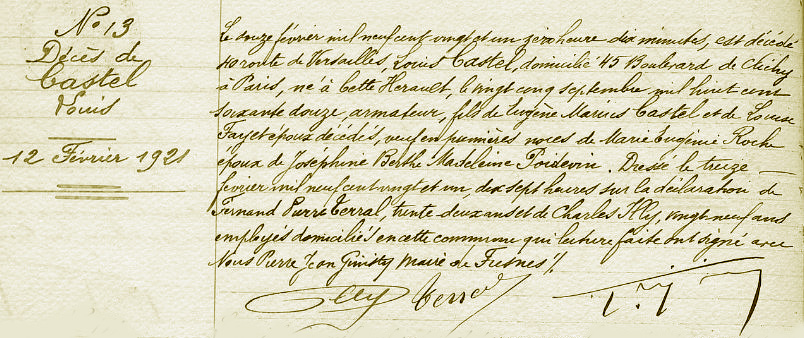 No 13
Décès de
Castel
Louis
12 Février 1921
Le douze février mil neuf cent vingt et un zéro heure dix minutes, est décédé
40 route de Versailles, Louis Castel, domicilié 45 Boulevard de Clichy
à Paris, né à Cette Herault, le vingt cinq septembre mil huit cent
soixante douze, armateur, fils de Eugène Marius Castel et de Louise
Fayet époux décédés, veuf en premières noces de Marie Eugénie Roche
époux de Joséphine Berthe Madeleine Poidevin. Dressé le treize
février mil neuf cent vingt et un, dix sept heures sur la déclaration de
Fernand Pierre Terral, trente deux ans et de Charles Illy, vingt neuf ans
employés domiciliés en cette commune qui lecture faite ont signé avec
Nous Pierre Jean Ginisty Maire de Fresnes /.
Illy Terral